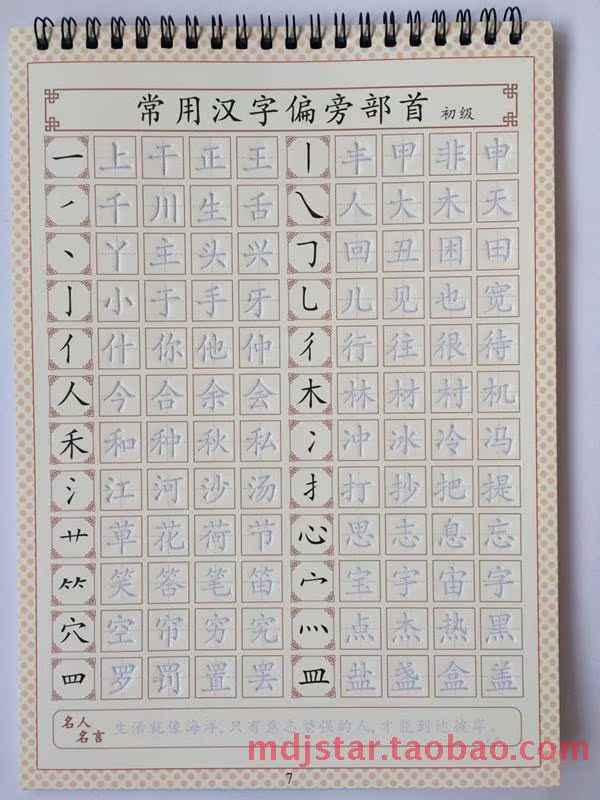 常用汉字偏旁部首 初级
一 上 干 正 王 丨 丰 甲 非 申
丿 千 川 生 舌 ㇏ 人 大 木 天
丶 丫 主 头 兴 𠃌 回 丑 困 田
亅 小 于 手 牙 乚 儿 见 也 宽
亻 什 你 他 仲 彳 行 往 很 待
人 今 合 余 会 木 林 材 村 机
禾 和 种 秋 私 冫 冲 冰 冷 冯
氵 江 河 沙 汤 扌 打 抄 把 提
艹 草 花 荷 节 心 思 志 息 忘
⺮ 笑 答 笔 笛 宀 宝 宇 宙 字
穴 空 帘 穷 究 灬 点 杰 热 黑
罒 罗 罚 置 罢 皿 盐 盏 盒 盖
名人名言 生活就像海洋,只有意志坚强的人,才能到达彼岸。
mdjstar.taobao.com
7